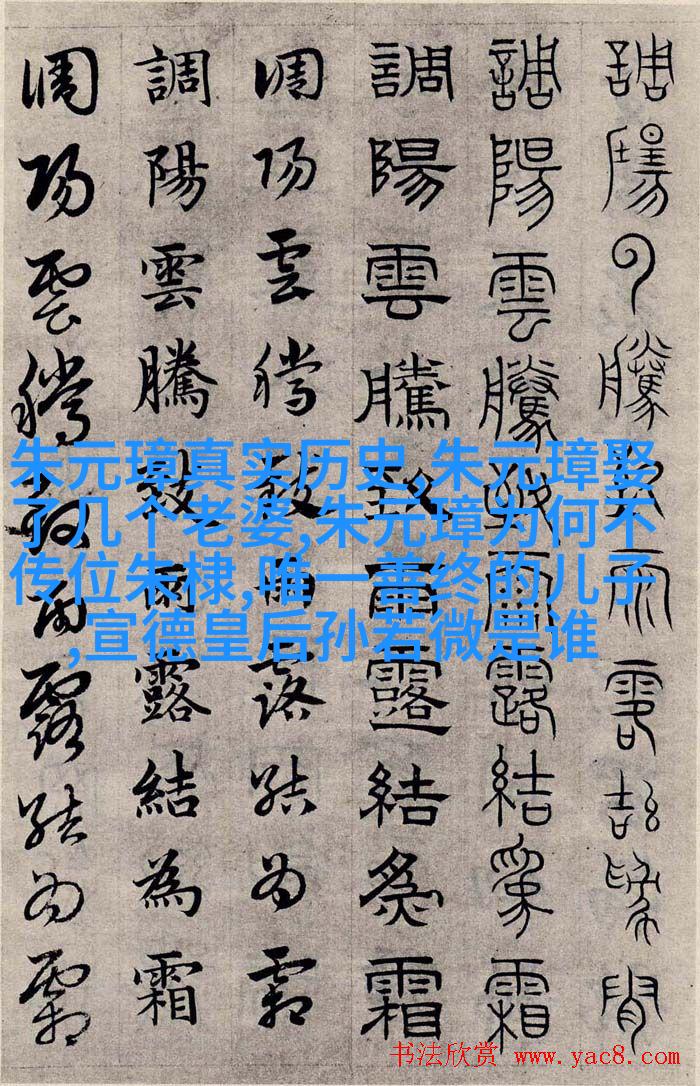 調陽雲騰致雨露結為霜
調陽雲騰致雨露結為霜
調陽雲騰致雨露結為霜
調陽雲騰致雨露結為霜
調陽雲騰致雨露結為霜
調陽雲騰致雨露結為霜
朱元璋真实历史,朱元璋娶
了几个老婆,朱元璋为何不
传位朱棣,唯一善终的儿子
,宣德皇后孙若微是谁
书法欣赏 www.yac8.com